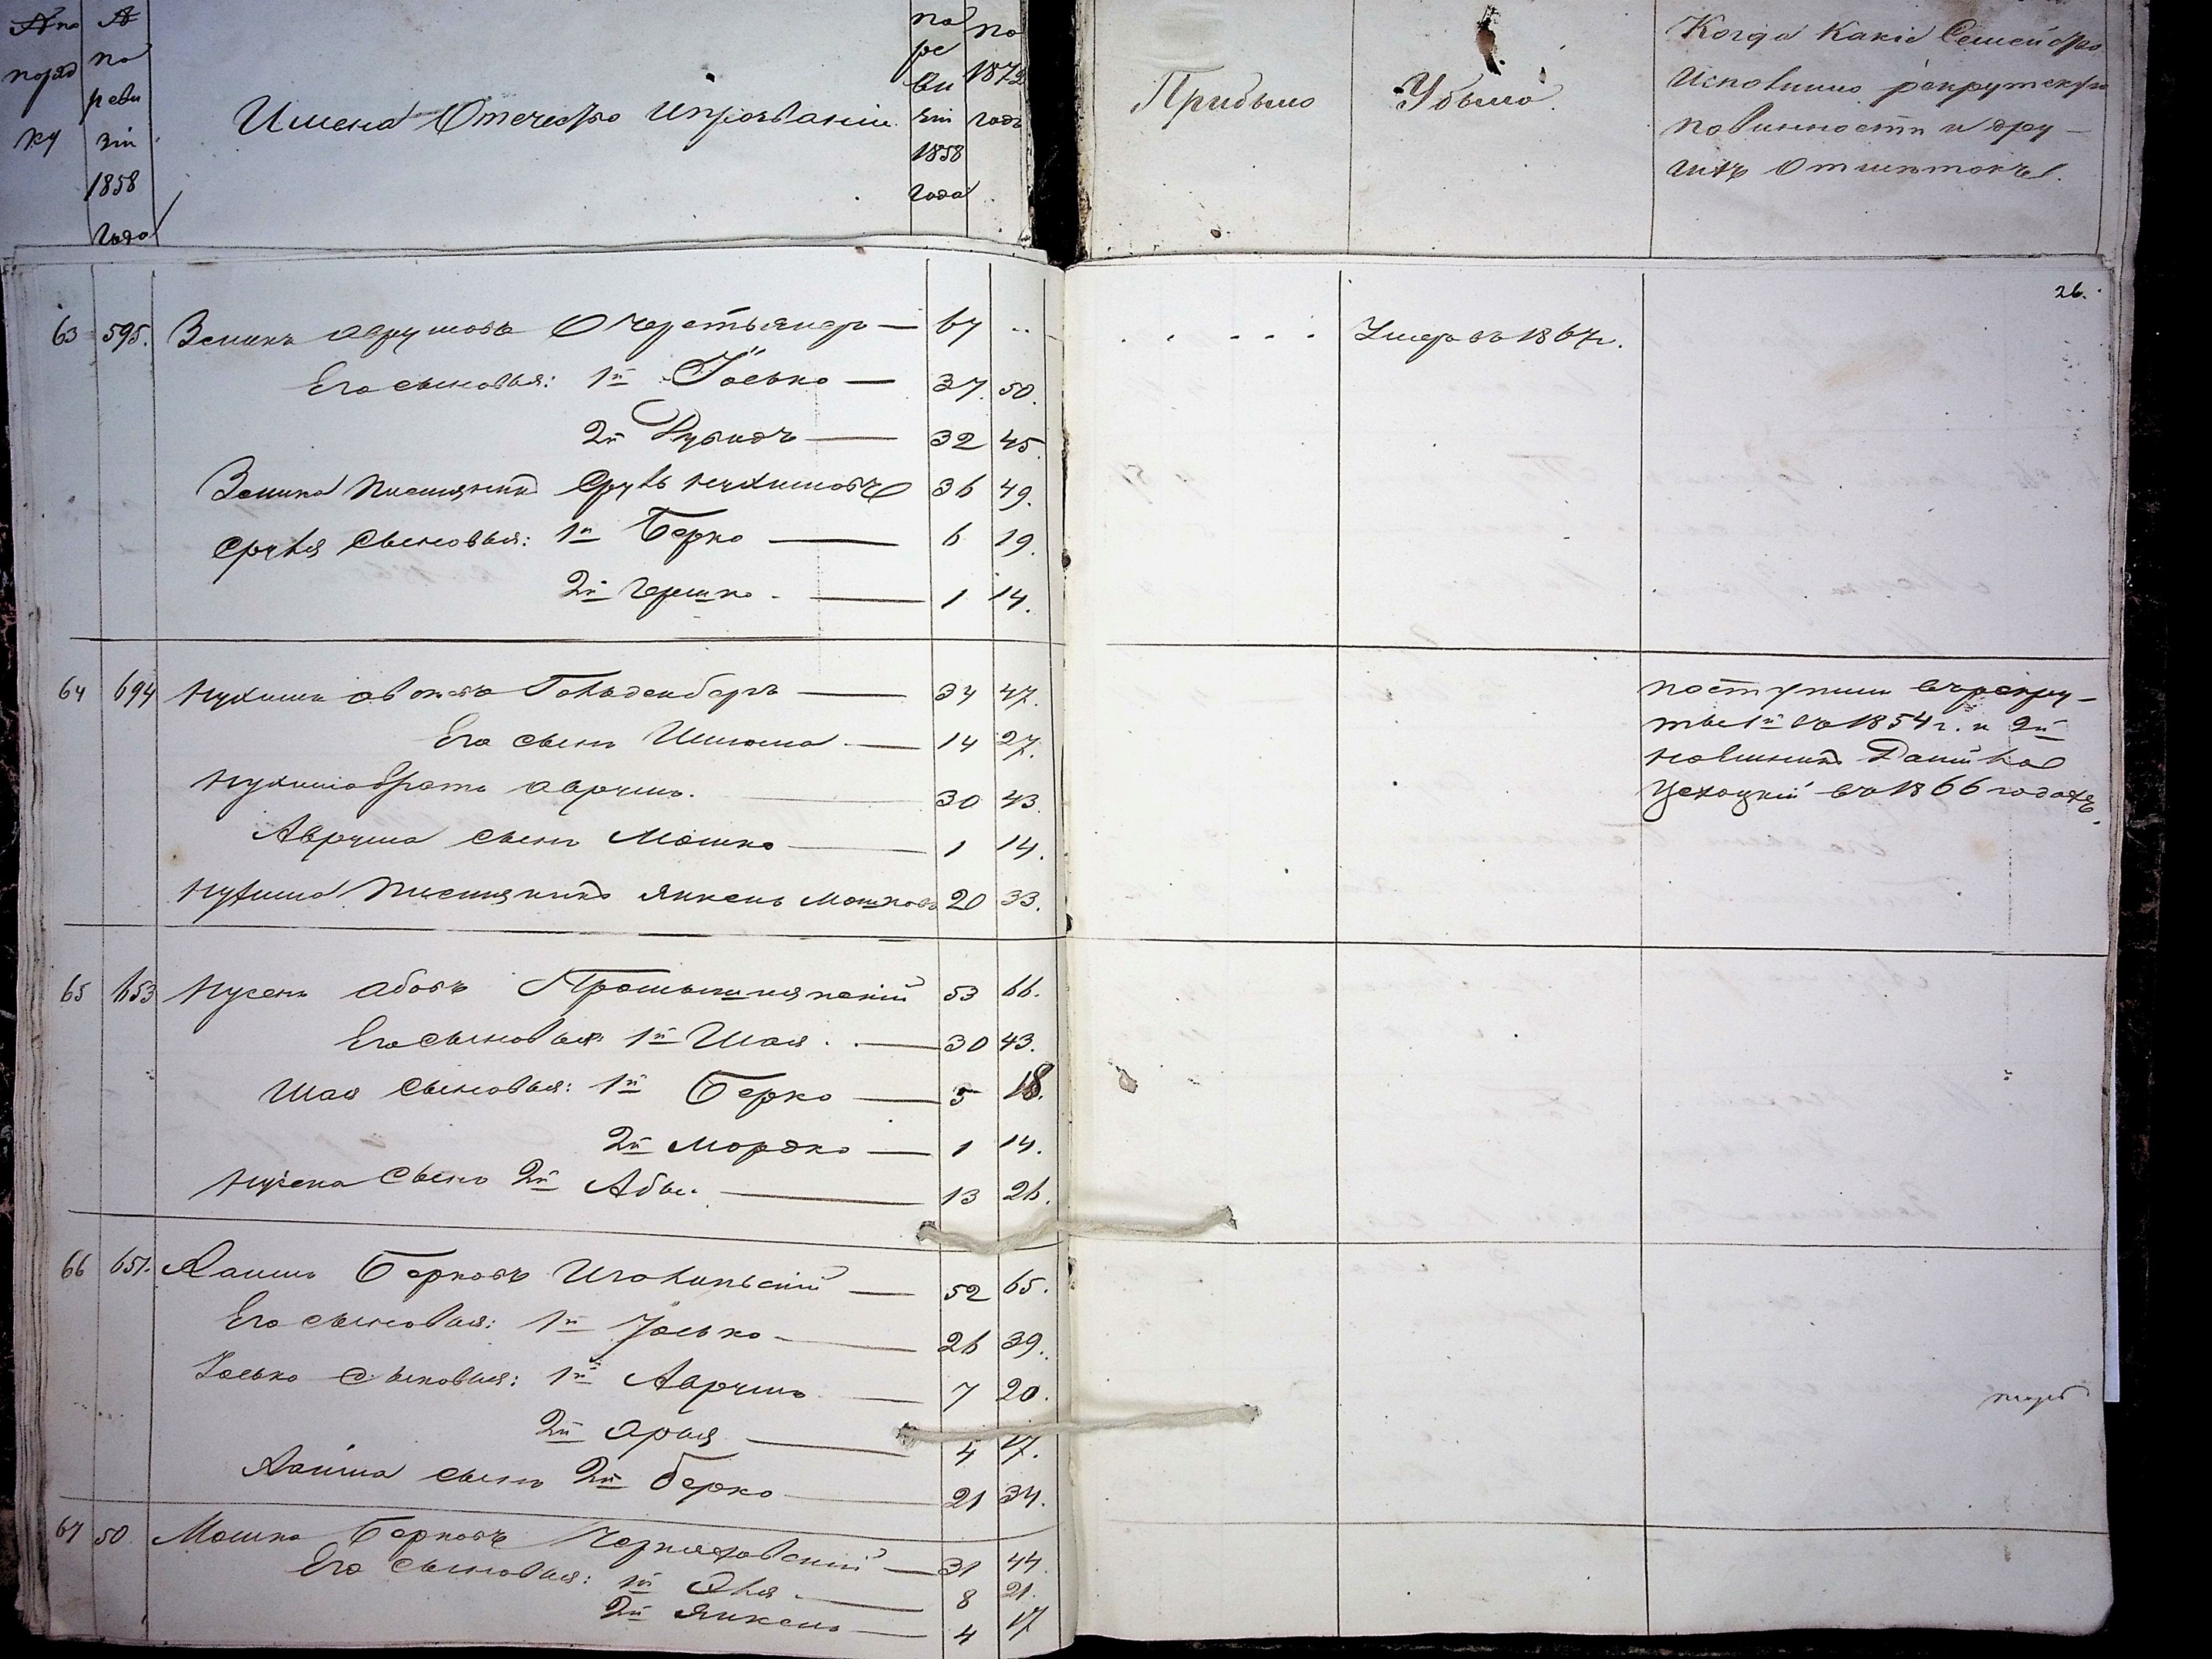 № по поряд ку
№ по реви зіи 1858 года
Имена Отечество и прозваніи
по ре ви зіи 1858 года
по 1872 годъ
Прибыло
Убыло
Когда Какіе Семейство
Исполнило рекрутскую
повинность и дру-
гихъ Отметокъ.
26.
63 595. Зельикъ Аврумовъ Очеретьянеръ — 67 ..
Умеръ въ 1867 г.
Его сыновья: 1й Іосько — 37. 50.
2й Рувидъ — 32 45.
Зелика племянникъ Сруль Нухимовъ 36 49.
Сруля Сыновья: 1й Берко — 6 19.
2й Гершко — 1 14.
64 694 Нухимъ Абовъ Гольденберъ — 34 47.
поступили въ рекру-
ты 1й въ 1854 г. и 2й
въ 1866 годахъ.
Его сынъ Шлиома — 14 27.
Нухима братъ Аврумъ. 30 43.
Аврума сынъ Мошко — 1 14.
Нухима племянникъ Янкель Мошковъ 20 33.
65 653 Нусень Абовъ Промышлянскій 53 66.
Его сыновья 1й Шая — 30 43.
Шая сыновья: 1й Берко — 5 18.
2й Мордко — 1 14.
Нусена сынъ 2й Абы. — 13 26.
66 651. Хаимъ Берковъ Игольпьскій — 52 65.
Его сыновья: 1й Іосько — 26 39.
Іосько сыновья: 1й Аврумъ — 7 20.
2й Арыя — 4 17.
Хаима сынъ 2й Берко — 21 34.
67 50. Мошко Берковъ Черняховскій — 31 44.
Его сыновья: 1й Эля — 8 21.
2й Янкель — 4 17